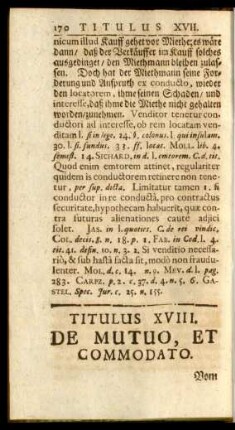 170 TITULUS XVII.
nicum illud Kauff gehet vor Miethe; es wäre
dann / daß der Verkäuffer im Kauff solches
ausgedinget / den Miethmann bleiben zulas-
sen. Doch hat der Miethmann seine For-
derung und Anspruch ex conducto, wieder
den locatorem, ihme seinen Schaden / und
interesse, daß ihme die Miethe nicht gehalten
worden / zunehmen. Venditor tenetur con-
ductori ad interesse, ob rem locatam ven-
ditam l. si in lege. 24. §. colonus. l. qui insulam.
30. l. si fundus. 33. ff. locat. MOLL. lib. 4.
semest. 14. SICHARD, in d. l. emtorem. C. d. tit.
Quod enim emtorem attinet, regulariter
quidem is conductorem retinere non tene-
tur, per sup. dicta. Limitatur tamen 1. si
conductor in re conducta, pro contractus
securitate, hypothecam habuerit, quæ con-
tra futuras alienationes caute adjici
solet. JAS. in l. quoties. C. de rei vindic.
COL. decis. p. n. 18. p. 1. FAB. in Cod. l. 4.
tit. 41. defin. 10. n. 3. 2. Si venditio necessa-
riò, & sub hasta facta sit, modò non fraudu-
lenter. MOL. d. c. 14. n. 9. MEV. d. l. pag.
283. CARPZ. p. 2. c. 37. d. 4. n. 5. 6. GA-
STEL. Spec. Jur. c. 25. n. 155.
TITULUS XVIII.
DE MUTUO, ET
COMMODATO.
Vom